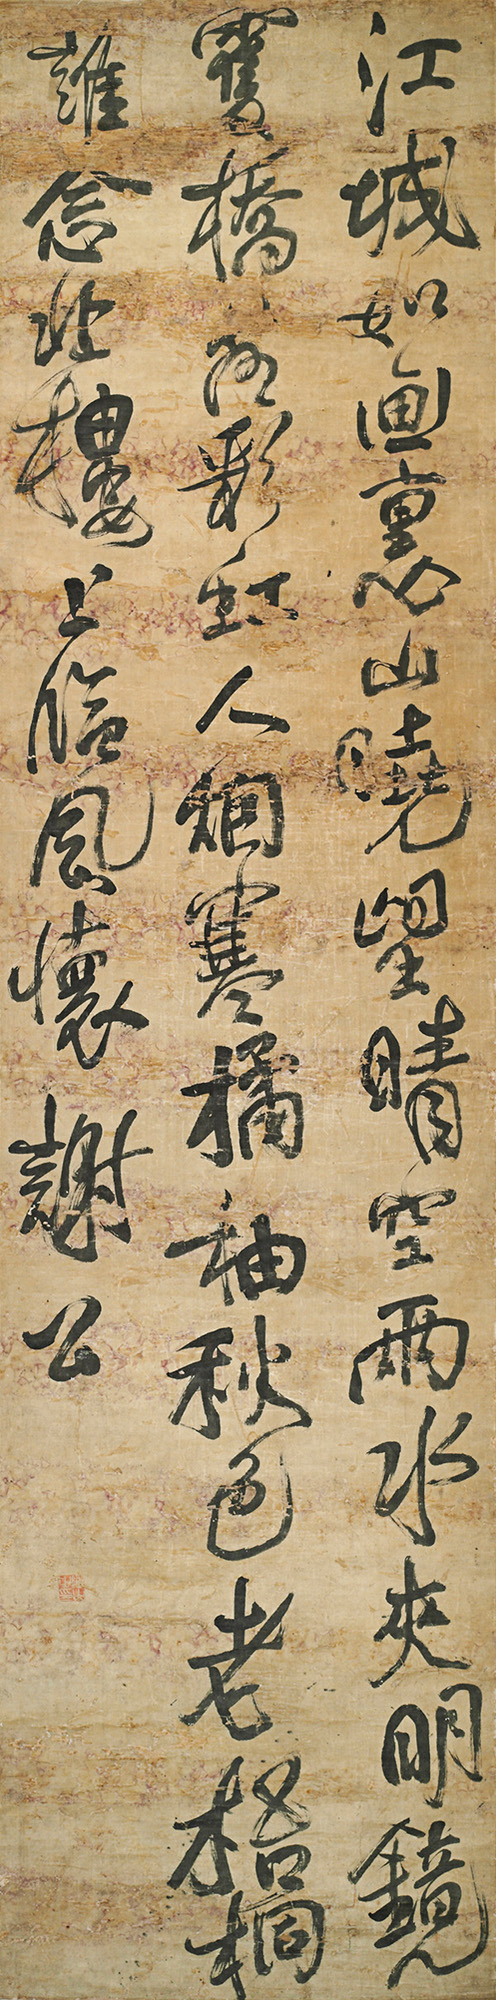 江城如画裏山曉望晴空兩水夾明鏡
雙橋落彩虹人烟寒橘柚秋色老梧桐
誰念北樓上臨風懷謝公